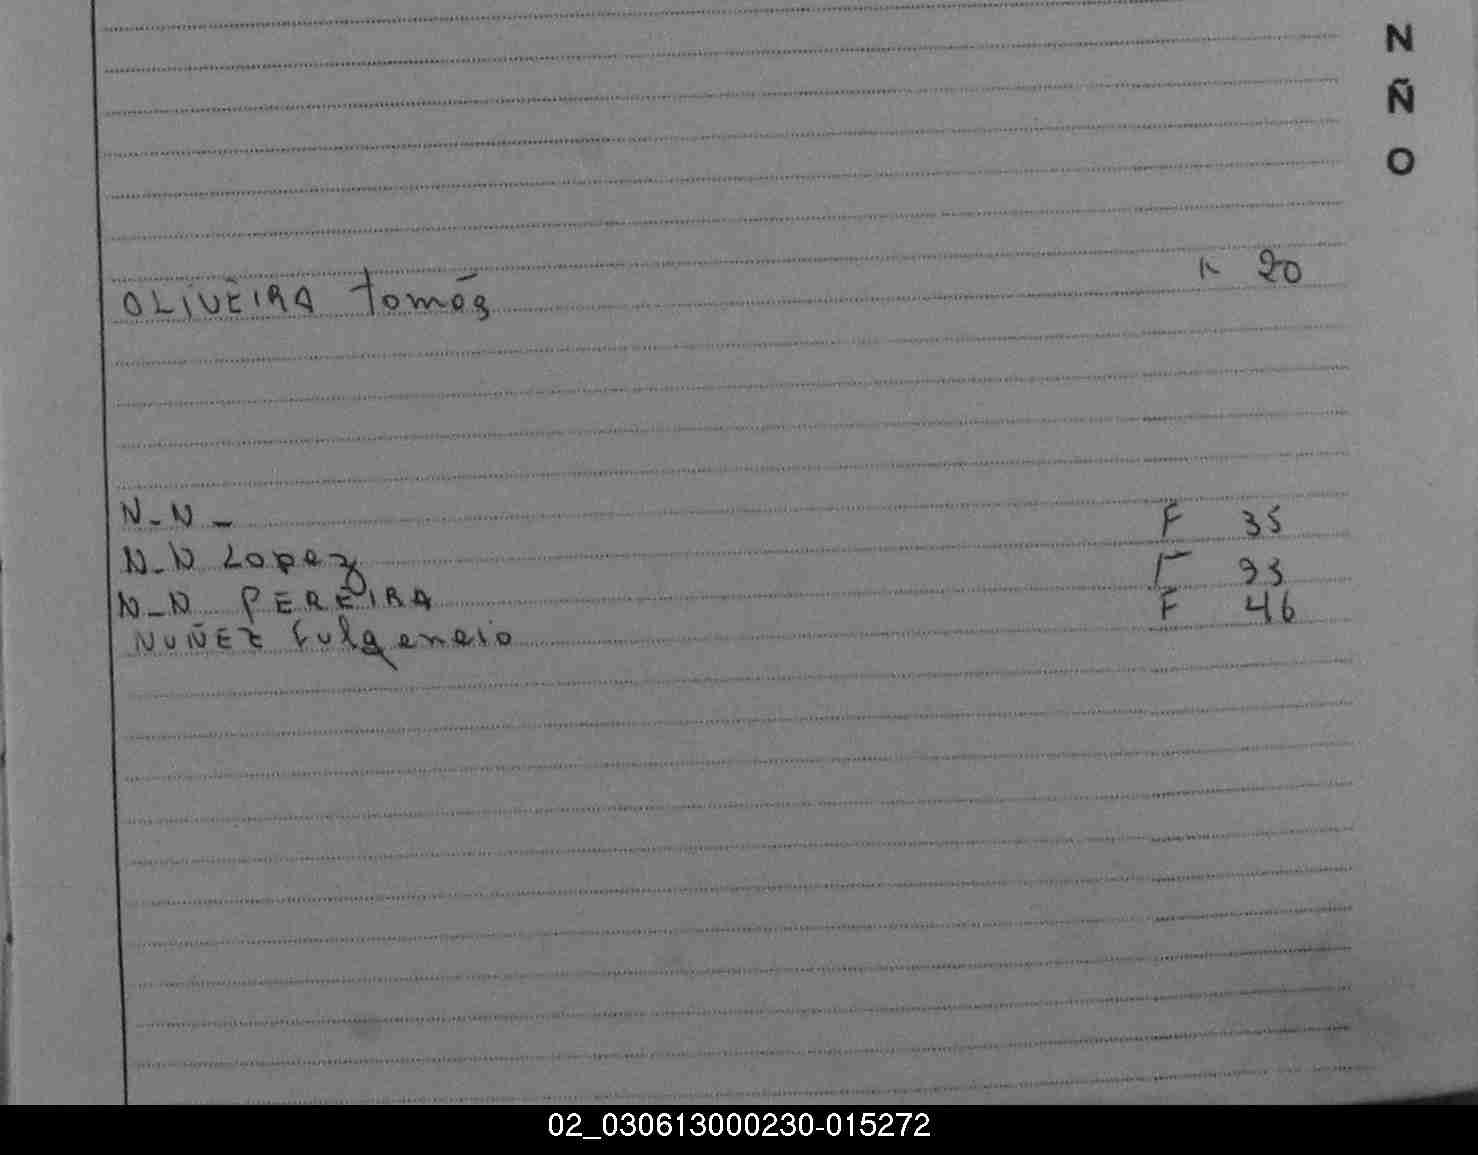 N
Ñ
O
OLIVEIRA Tomás 20
N-N- F 35
N-N Lopez F 93
N-N PEREIRA F 46
NUÑEZ Fulgencio
02_030613000230-015272